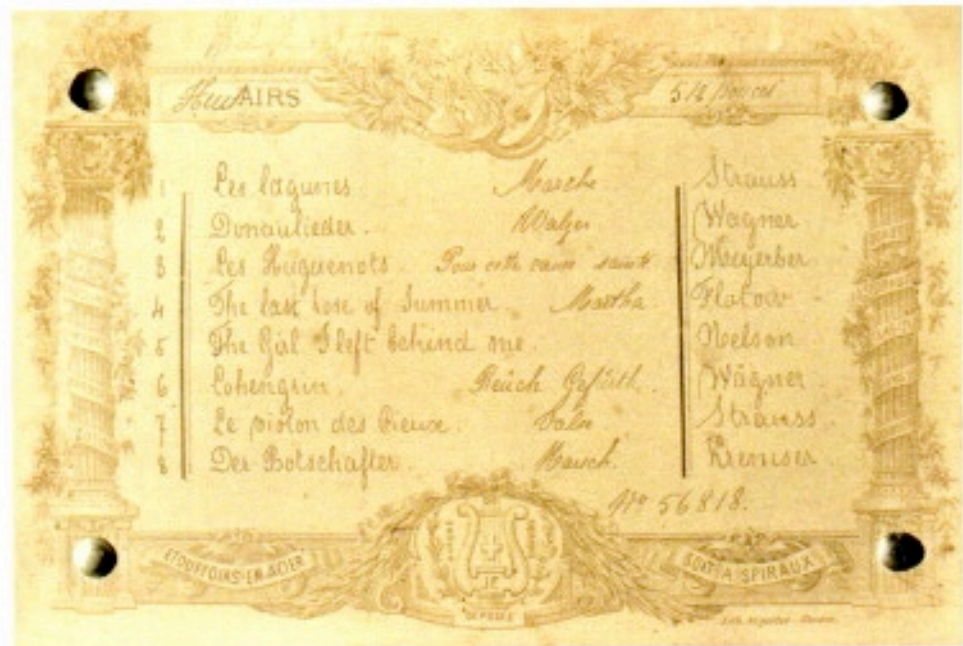 Huit AIRS 5 1/2 pouces
1 Les lagunes Marche Strauss
2 Donaulieder. Walzer Wagner
3 Les Huguenots Pour cette cause sainte Meyerber
4 The last Rose of Summer Martha. Flotow
5 The Girl I left behind me. Nelson
6 Lohengrin. Wagner
7 Le violon des Valse Strauss.
8 Der Botschafter. Marsch. Kremser
No 56818.
ETOUFFOIRS-EN-ACIER SONT A SPIRAUX
DEPOSÉ